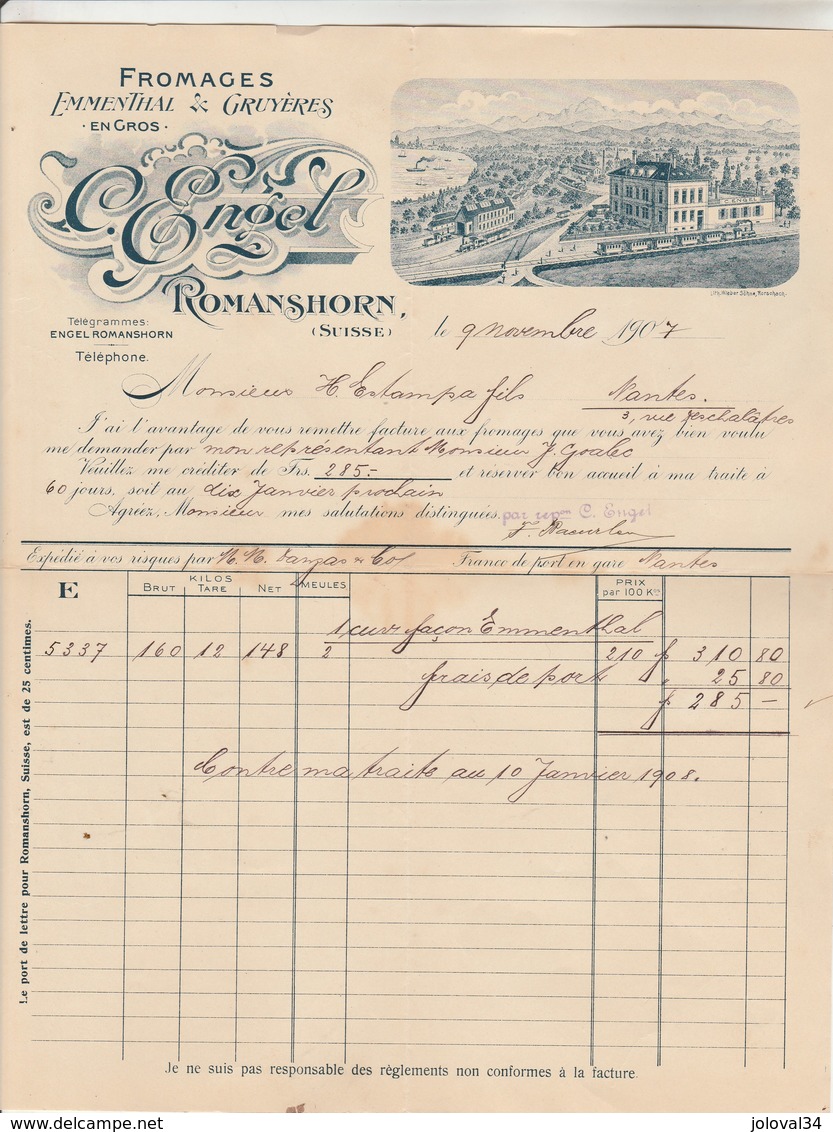 FROMAGES
EMMENTHAL & GRUYÈRES
· EN GROS ·
C. Engel
ROMANSHORN,
(SUISSE)
C. ENGEL
Lith. Weber Söhne, Rorschach.
Télégrammes:
ENGEL ROMANSHORN
Téléphone.
le 9 novembre 1907
Monsieur H. Estampa fils Nantes.
3, rue
J'ai l'avantage de vous remettre facture aux fromages que vous avez bien voulu
me demander par mon représentant Monsieur J. Goalec
Veuillez me créditer de Frs. 285.- et réserver bon accueil à ma traite à
60 jours, soit au dix Janvier prochain
Agréez, Monsieur mes salutations distinguées. par C. Engel
Expédié à vos risques par M. M. & Co/ Franco de port en gare Nantes
E BRUT KILOS TARE NET MEULES PRIX par 100 Kos
1 cuv. façon Emmenthal
5337 160 12 148 2 210 f 310 80
frais de port " 25 80
f 285 —
Contre ma traite au 10 Janvier 1908.
Le port de lettre pour Romanshorn, Suisse, est de 25 centimes.
Je ne suis pas responsable des règlements non conformes à la facture.
www.delcampe.net
joloval34